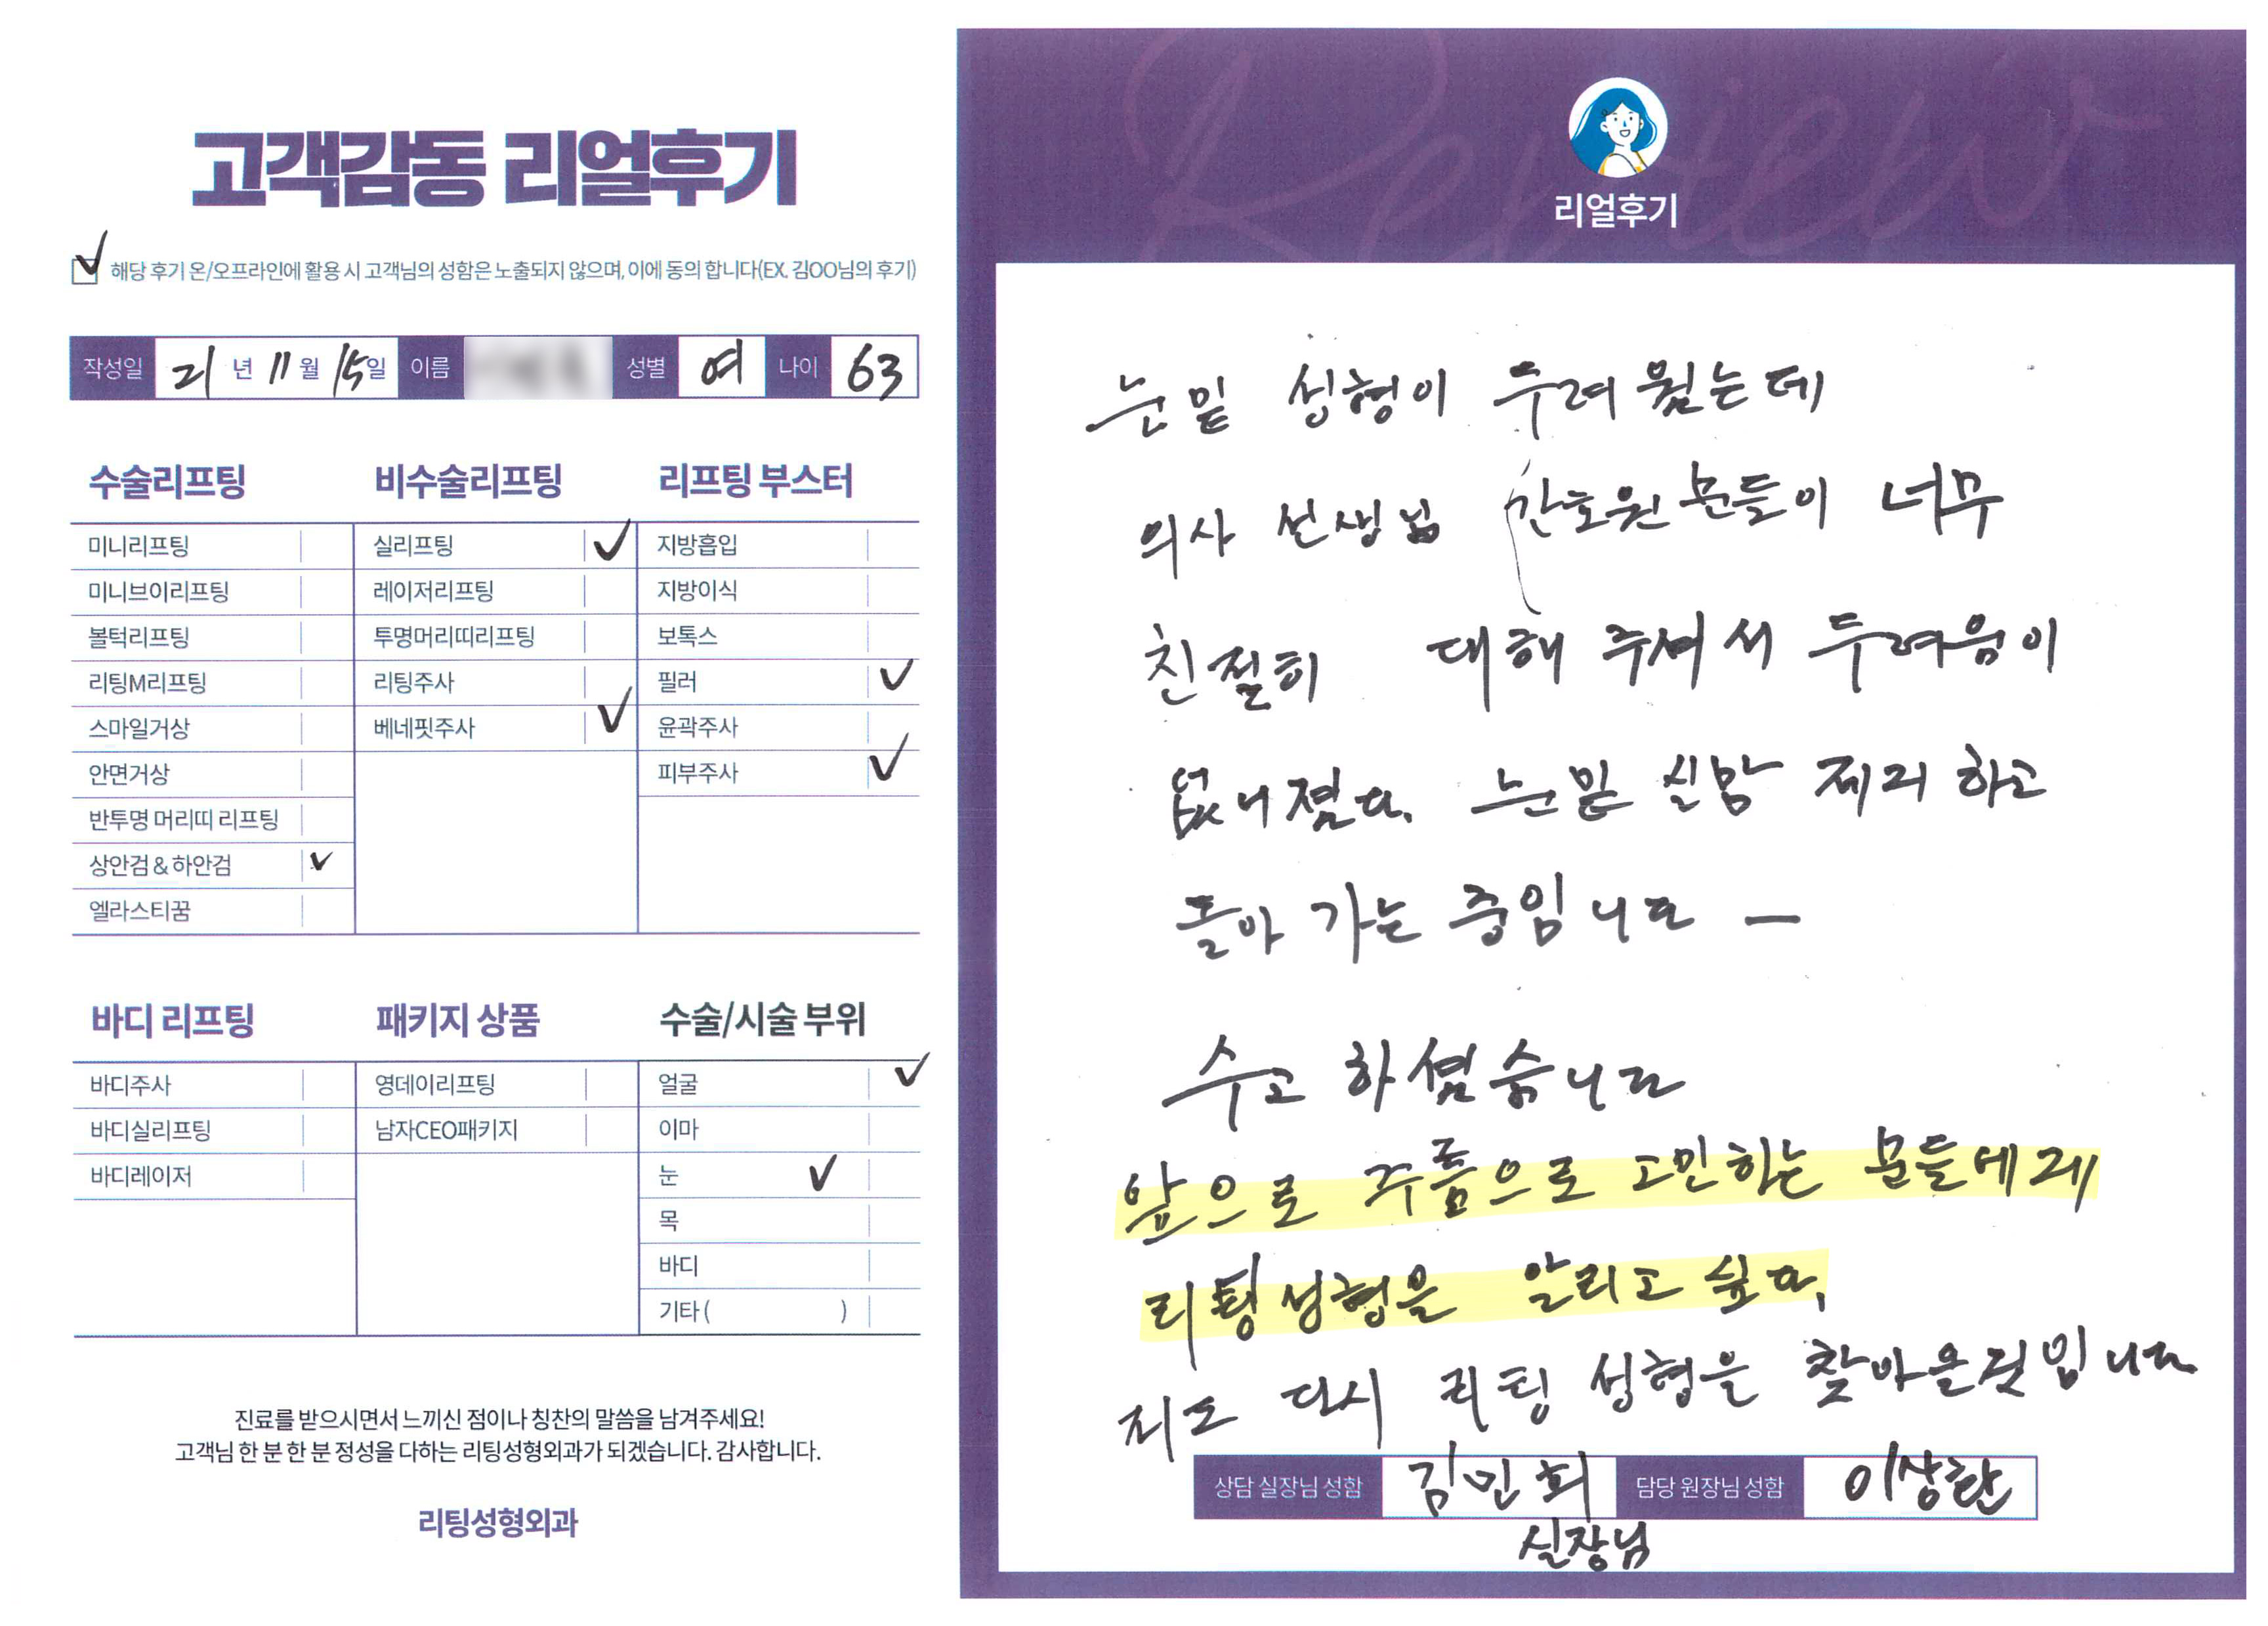 고객감동 리얼후기
✓ 해당 후기 온/오프라인에 활용 시 고객님의 성함은 노출되지 않으며, 이에 동의 합니다(EX. 김OO님의 후기)
작성일 21 년 11 월 15 일 이름 성별 여 나이 63
수술리프팅 비수술리프팅 리프팅 부스터
미니리프팅 실리프팅 ✓ 지방흡입
미니브이리프팅 레이저리프팅 지방이식
볼턱리프팅 투명머리띠리프팅 보톡스
리팅M리프팅 리팅주사 필러 ✓
스마일거상 베네핏주사 ✓ 윤곽주사
안면거상 피부주사 ✓
반투명 머리띠 리프팅
상안검 & 하안검 ✓
엘라스티꿈
바디 리프팅 패키지 상품 수술/시술 부위
바디주사 영데이리프팅 얼굴 ✓
바디실리프팅 남자CEO패키지 이마
바디레이저 눈 ✓
목
바디
기타 ( )
진료를 받으시면서 느끼신 점이나 칭찬의 말씀을 남겨주세요!
고객님 한 분 한 분 정성을 다하는 리팅성형외과가 되겠습니다. 감사합니다.
리팅성형외과
Review
리얼후기
눈밑 성형이 두려웠는데
의사 선생님 간호원 분들이 너무
친절히 대해 주셔서 두려움이
없어졌다. 눈밑 실밥 제거 하고
돌아 가는 중입니다 —
수고 하셨습니다
앞으로 주름으로 고민하는 분들에게
리팅성형을 알리고 싶다.
저도 다시 리팅 성형을 찾아올것입니다
상담 실장님 성함 김민희 담당 원장님 성함 이상환
실장님